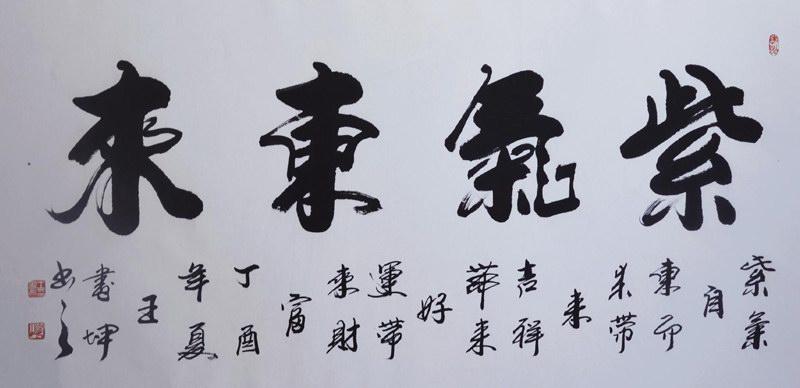 紫氣東來
紫氣
自
東而
来帶
来
吉祥
帶来
好
運帶
來財
富
丁酉
年夏
王
書坤
书之